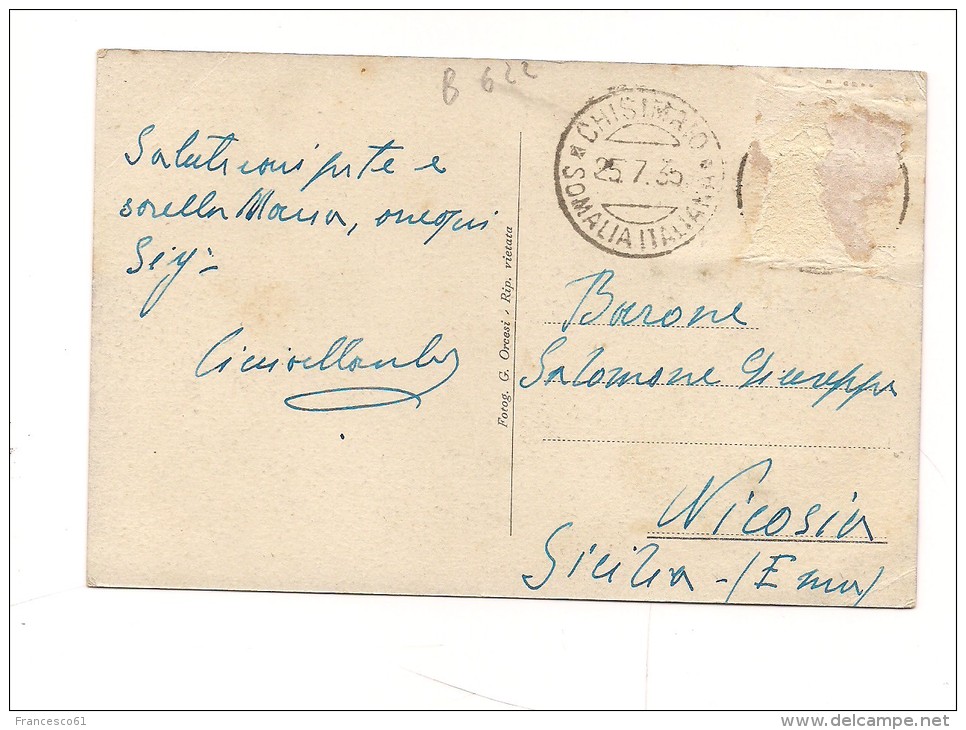 B 622
CHISIMAIO
25.7.35
SOMALIA ITALIANA
Saluti e
sorella Maria,
Barone
Salomone Giuseppe
Nicosia
Sicilia - (Enna)
Fotog. G. Orcesi - Rip. vietata
Francesco61
www.delcampe.net